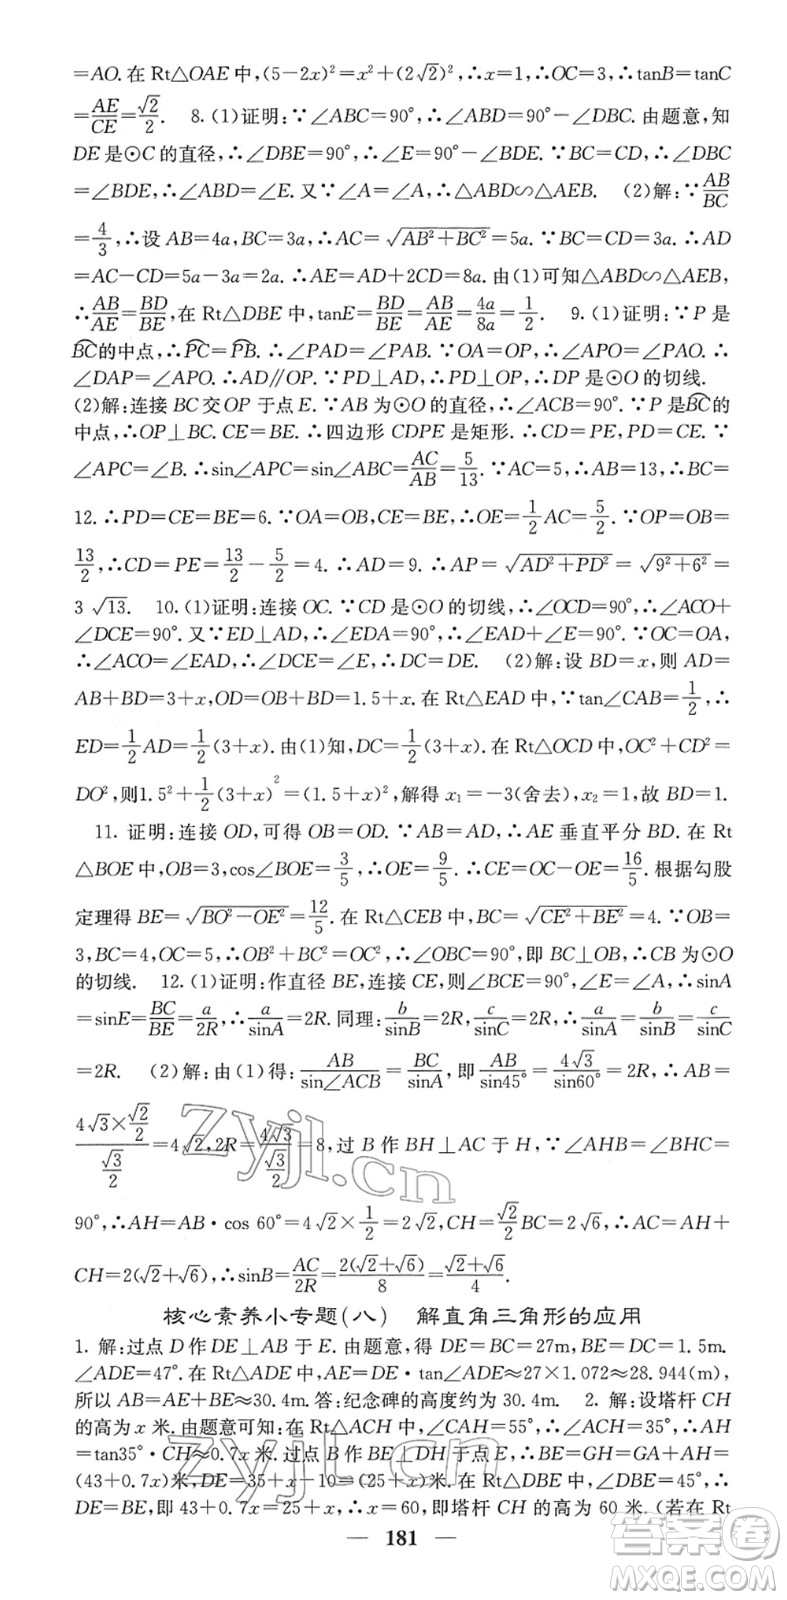 =AO.在Rt△OAE中,(5-2x)²=x²+(2√2)²,∴x=1,∴OC=3,∴tanB=tanC
=AE/CE=√2/2. 8.(1)证明:∵∠ABC=90°,∴∠ABD=90°-∠DBC.由题意,知
DE是⊙C的直径,∴∠DBE=90°,∴∠E=90°-∠BDE.∵BC=CD,∴∠DBC
=∠BDE,∴∠ABD=∠E.又∵∠A=∠A,∴△ABD∽△AEB. (2)解:∵AB/BC
=4/3,∴设AB=4a,BC=3a,∴AC=√(AB²+BC²)=5a.∵BC=CD=3a.∴AD
=AC-CD=5a-3a=2a.∴AE=AD+2CD=8a.由(1)可知△ABD∽△AEB,
∴AB/AE=BD/BE,在Rt△DBE中,tanE=BD/BE=AB/AE=4a/8a=1/2. 9.(1)证明:∵P是
⌒BC的中点,∴⌒PC=⌒PB.∴∠PAD=∠PAB.∵OA=OP,∴∠APO=∠PAO.∴
∠DAP=∠APO.∴AD∥OP.∵PD⊥AD,∴PD⊥OP,∴DP是⊙O的切线.
(2)解:连接BC交OP于点E.∵AB为⊙O的直径,∴∠ACB=90°.∵P是⌒BC的
中点,∴OP⊥BC.CE=BE.∴四边形CDPE是矩形.∴CD=PE,PD=CE.∵
∠APC=∠B.∴sin∠APC=sin∠ABC=AC/AB=5/13.∵AC=5,∴AB=13,∴BC=
12.∴PD=CE=BE=6.∵OA=OB,CE=BE,∴OE=1/2AC=5/2.∵OP=OB=
13/2,∴CD=PE=13/2-5/2=4.∴AD=9.∴AP=√(AD²+PD²)=√(9²+6²)=
3√13. 10.(1)证明:连接OC.∵CD是⊙O的切线,∴∠OCD=90°,∴∠ACO+
∠DCE=90°.又∵ED⊥AD,∴∠EDA=90°,∴∠EAD+∠E=90°.∵OC=OA,
∴∠ACO=∠EAD,∴∠DCE=∠E,∴DC=DE. (2)解:设BD=x,则AD=
AB+BD=3+x,OD=OB+BD=1.5+x.在Rt△EAD中,∵tan∠CAB=1/2,∴
ED=1/2AD=1/2(3+x).由(1)知,DC=1/2(3+x).在Rt△OCD中,OC²+CD²=
DO²,则1.5²+1/2(3+x)²=(1.5+x)²,解得x₁=-3(舍去),x₂=1,故BD=1.
11.证明:连接OD,可得OB=OD.∵AB=AD,∴AE垂直平分BD.在Rt
△BOE中,OB=3,cos∠BOE=3/5,∴OE=9/5.∴CE=OC-OE=16/5.根据勾股
定理得BE=√(BO²-OE²)=12/5.在Rt△CEB中,BC=√(CE²+BE²)=4.∵OB=
3,BC=4,OC=5,∴OB²+BC²=OC²,∴∠OBC=90°,即BC⊥OB,∴CB为⊙O
的切线. 12.(1)证明:作直径BE,连接CE,则∠BCE=90°,∠E=∠A,∴sinA
=sinE=BC/BE=a/2R,∴a/sinA=2R.同理:b/sinB=2R,c/sinC=2R,∴a/sinA=b/sinB=c/sinC
=2R. (2)解:由(1)得:AB/sin∠ACB=BC/sinA,即AB/sin45°=4√3/sin60°=2R,∴AB=
(4√3×√2/2)/(√3/2)=4√2,2R=4√3/(√3/2)=8,过B作BH⊥AC于H,∵∠AHB=∠BHC=
90°,∴AH=AB·cos 60°=4√2×1/2=2√2,CH=√2/2BC=2√6,∴AC=AH+
CH=2(√2+√6),∴sinB=AC/2R=2(√2+√6)/8=(√2+√6)/4.
核心素养小专题(八) 解直角三角形的应用
1.解:过点D作DE⊥AB于E.由题意,得DE=BC=27m,BE=DC=1.5m.
∠ADE=47°.在Rt△ADE中,AE=DE·tan∠ADE≈27×1.072≈28.944(m),
所以AB=AE+BE≈30.4m.答:纪念碑的高度约为30.4m. 2.解:设塔杆CH
的高为x米.由题意可知:在Rt△ACH中,∠CAH=55°,∴∠ACH=35°,∴AH=
tan35°·CH≈0.7x米.过点B作BE⊥DH于点E,∴BE=GH=GA+AH=
(43+0.7x)米,DE=35+x-10=(25+x)米.在Rt△DBE中,∠DBE=45°,∴
DE=BE,即43+0.7x=25+x,∴x=60,即塔杆CH的高为60米.(若在Rt
— 181 —
zyjl.cn
zyjl.cn
答案圈
MXQE.COM